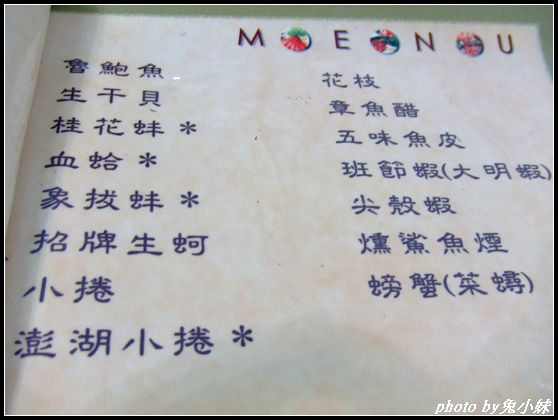 MENU
魯鮑魚
生干貝
桂花蚌*
血蛤*
象拔蚌*
招牌生蚵
小捲
澎湖小捲*
花枝
章魚醋
五味魚皮
班節蝦(大明蝦)
尖殼蝦
燻鯊魚煙
螃蟹(菜蟳)
photo by兔小妹